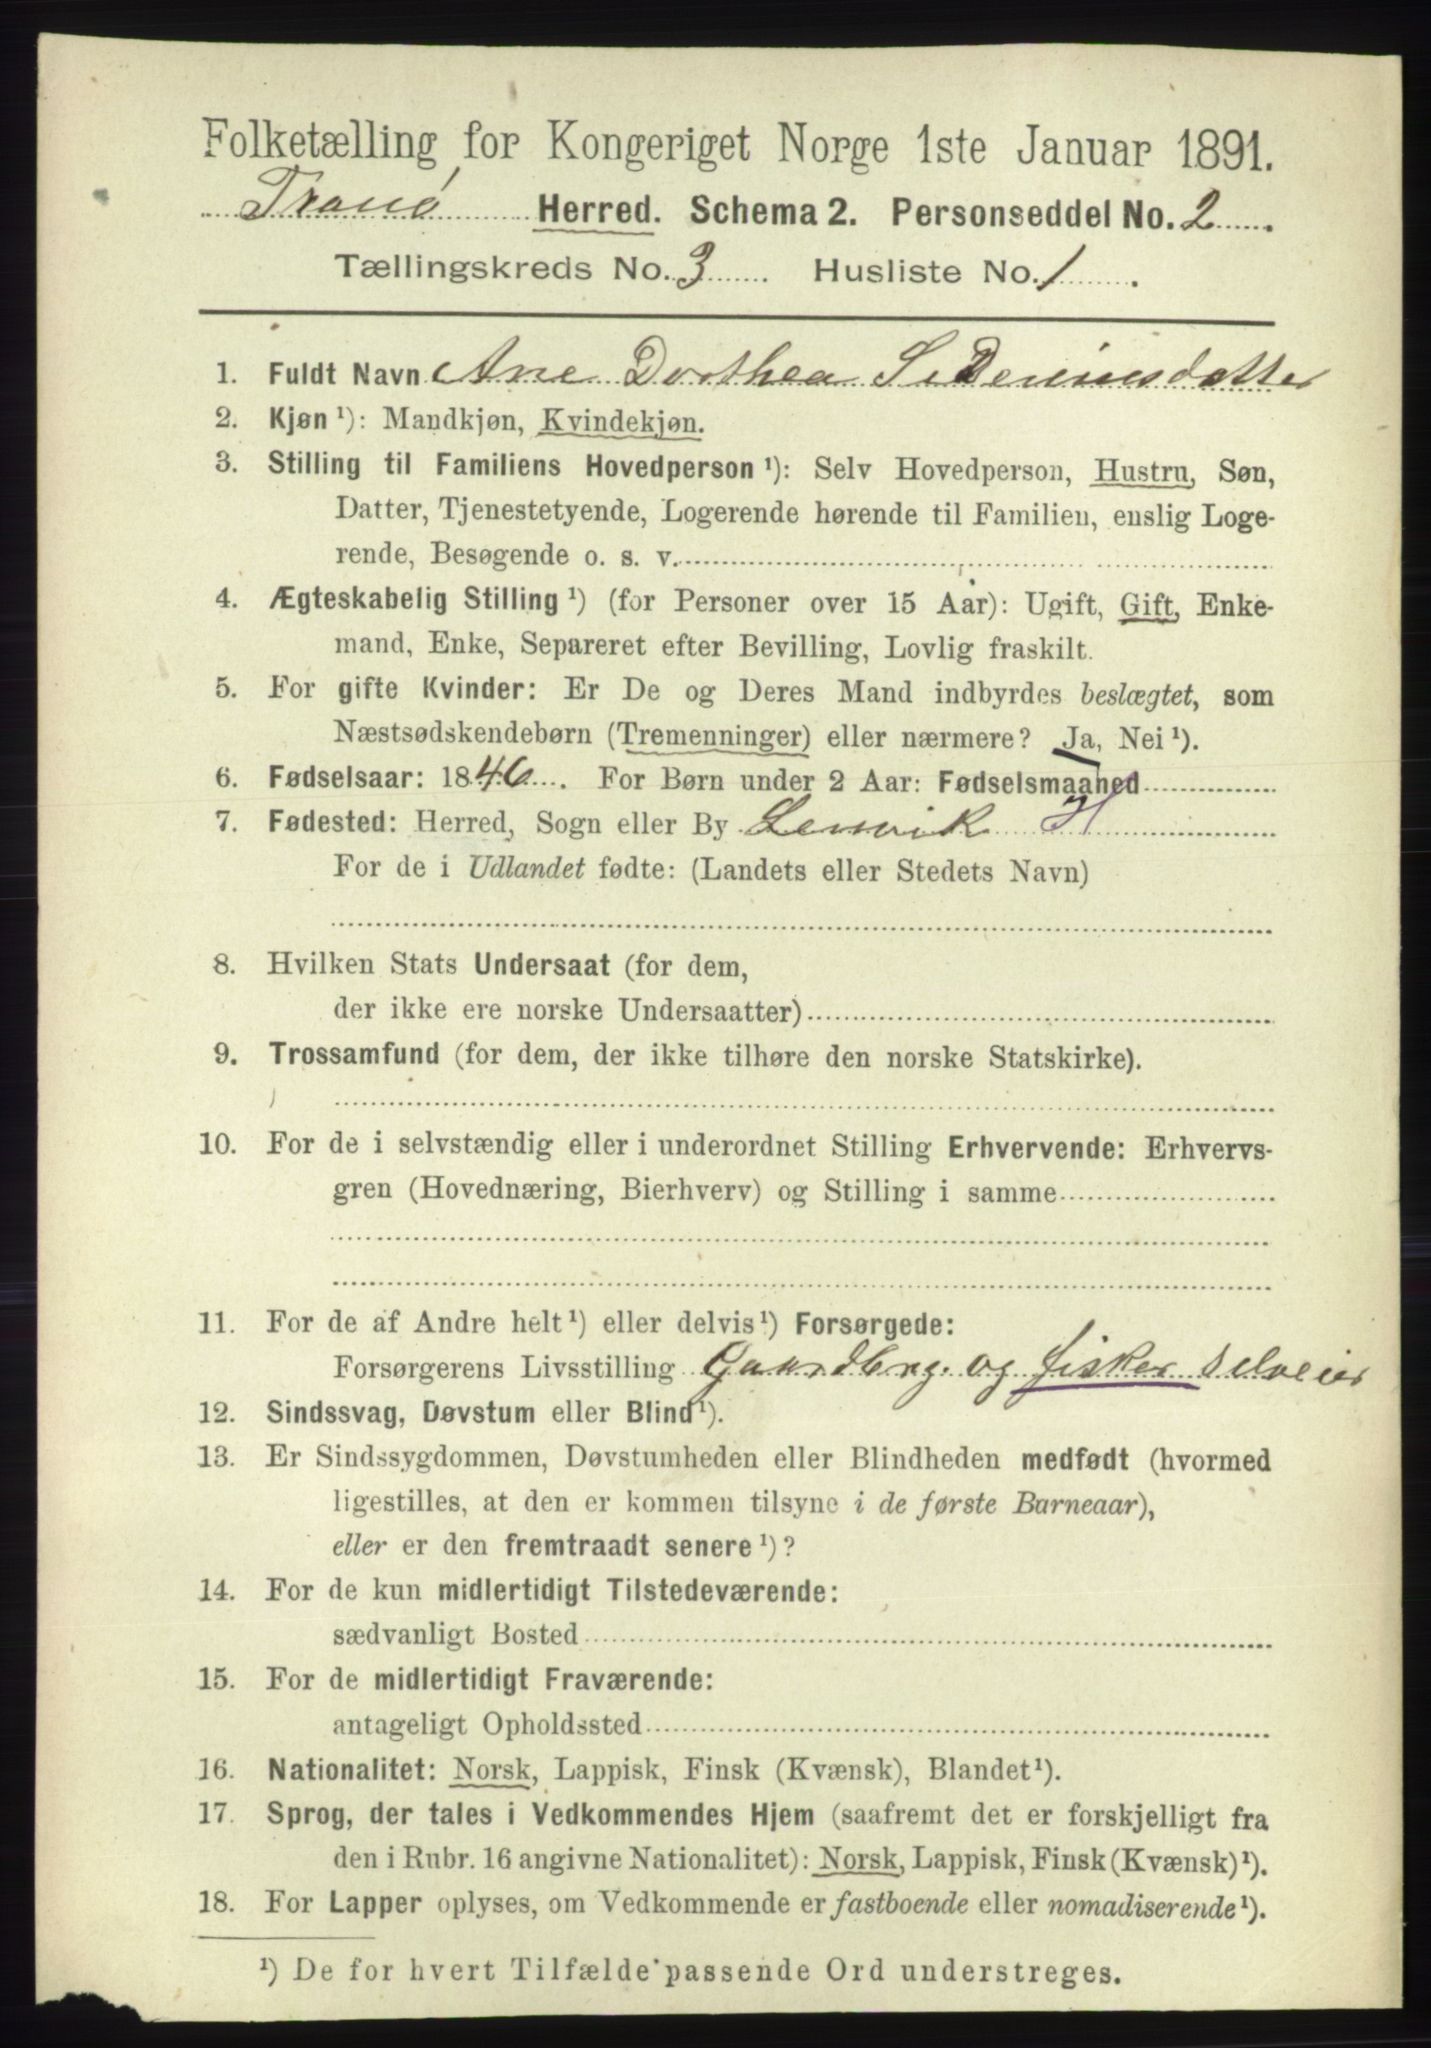 Folketælling for Kongeriget Norge 1ste Januar 1891.
Tranø Herred. Schema 2. Personseddel No. 2
Tællingskreds No. 3 Husliste No. 1
1. Fuldt Navn Ane Dorthea
2. Kjøn ¹): Mandkjøn, Kvindekjøn.
3. Stilling til Familiens Hovedperson ¹): Selv Hovedperson, Hustru, Søn,
Datter, Tjenestetyende, Logerende hørende til Familien, enslig Loge-
rende, Besøgende o. s. v.
4. Ægteskabelig Stilling ¹) (for Personer over 15 Aar): Ugift, Gift, Enke-
mand, Enke, Separeret efter Bevilling, Lovlig fraskilt.
5. For gifte Kvinder: Er De og Deres Mand indbyrdes beslægtet, som
Næstsødskendebørn (Tremenninger) eller nærmere? Ja, Nei ¹).
6. Fødselsaar: 1846. For Børn under 2 Aar: Fødselsmaaned
7. Fødested: Herred, Sogn eller By Lenvik H
For de i Udlandet fødte: (Landets eller Stedets Navn)
8. Hvilken Stats Undersaat (for dem,
der ikke ere norske Undersaatter)
9. Trossamfund (for dem, der ikke tilhøre den norske Statskirke).
10. For de i selvstændig eller i underordnet Stilling Erhvervende: Erhvervs-
gren (Hovednæring, Bierhverv) og Stilling i samme
11. For de af Andre helt ¹) eller delvis ¹) Forsørgede:
Forsørgerens Livsstilling Gaardbrg. og fisker selveier
12. Sindssvag, Døvstum eller Blind ¹).
13. Er Sindssygdommen, Døvstumheden eller Blindheden medfødt (hvormed
ligestilles, at den er kommen tilsyne i de første Barneaar),
eller er den fremtraadt senere ¹)?
14. For de kun midlertidigt Tilstedeværende:
sædvanligt Bosted
15. For de midlertidigt Fraværende:
antageligt Opholdssted
16. Nationalitet: Norsk, Lappisk, Finsk (Kvænsk), Blandet ¹).
17. Sprog, der tales i Vedkommendes Hjem (saafremt det er forskjelligt fra
den i Rubr. 16 angivne Nationalitet): Norsk, Lappisk, Finsk (Kvænsk) ¹).
18. For Lapper oplyses, om Vedkommende er fastboende eller nomadiserende ¹).
¹) De for hvert Tilfælde passende Ord understreges.